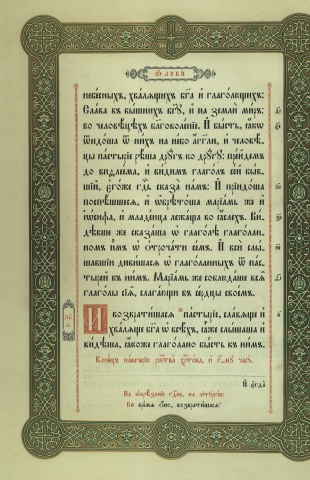 Ѿ ЛꙊКИ
небесныхъ, хвалѧщихъ бг҃а и҆ глаголющихъ:
Слава въ вышнихъ бг҃ꙋ, и҆ на землѝ миръ:
во человѣцѣхъ бл҃говоленїе. И҆ бысть, ꙗ҆кѡ
ѿидоша ѿ нихъ на небо а҆г҃гли, и҆ человѣ-
цы пастырїе рѣша дрꙋгъ ко дрꙋгꙋ: прейдемъ
до виѳлеема, и҆ видимъ глаголъ сей быв-
шїй, є҆гѡже гд҇ь сказа намъ: И҆ прїидоша
поспѣшшесѧ, и҆ ѡ҆брѣтоша марїамь же и҆
і҆ѡсифа, и҆ младенца лежаща во ꙗ҆слехъ. Ви-
дѣвше же сказаша ѡ҆ глаголѣ глаголан-
номъ и҆мъ ѡ҆ отрочати семъ. И҆ вси слы-
шавшїи дивишасѧ ѡ҆ глаголанныхъ ѿ пас-
тырей къ нимъ. Марїамь же соблюдаше всѧ
глаголы сїѧ, слагающи въ сердцы своемъ.
И возвратишасѧ пастырїе, славѧще и҆
хвалѧще бг҃а ѡ҆ всѣхъ, ꙗ҆же слышаша и҆
видѣша, ꙗ҆коже глаголано бысть къ нимъ.
Конецъ навечерїю рж҇тва хр҇това, и҆ а҃-мꙋ часꙋ.
И҆ є҆гда
На ѡ҆брѣзанїе гд҇не, на літꙋргїи:
Во времѧ ѻ҆но, возвратишасѧ